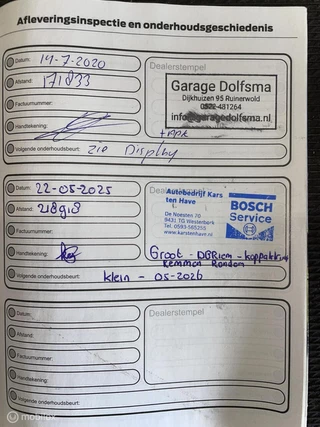 Afleveringsinspectie en onderhoudsgeschiedenis
Datum: 14-7-2020
Dealerstempel
Afstand: 171833
Garage Dolfsma
Dijkhuizen 95 Ruinerwold
0522-481264
info@garagedolfsma.nl
Factuurnummer:
Handtekening:
Volgende onderhoudsbeurt: zie Display
Datum: 22-05-2025
Autobedrijf Kars
ten Have
De Noesten 70
9431 TG Westerbork
Tel. 0593 565255
www.karstenhave.nl
BOSCH
Service
Afstand: 218918
Factuurnummer:
Handtekening:
Groot - DGRiem - koppakking
Remmen Rondom
Volgende onderhoudsbeurt: klein - 05-2026
Datum:
Dealerstempel
Afstand:
Factuurnummer:
Handtekening:
Volgende onderhoudsbeurt: